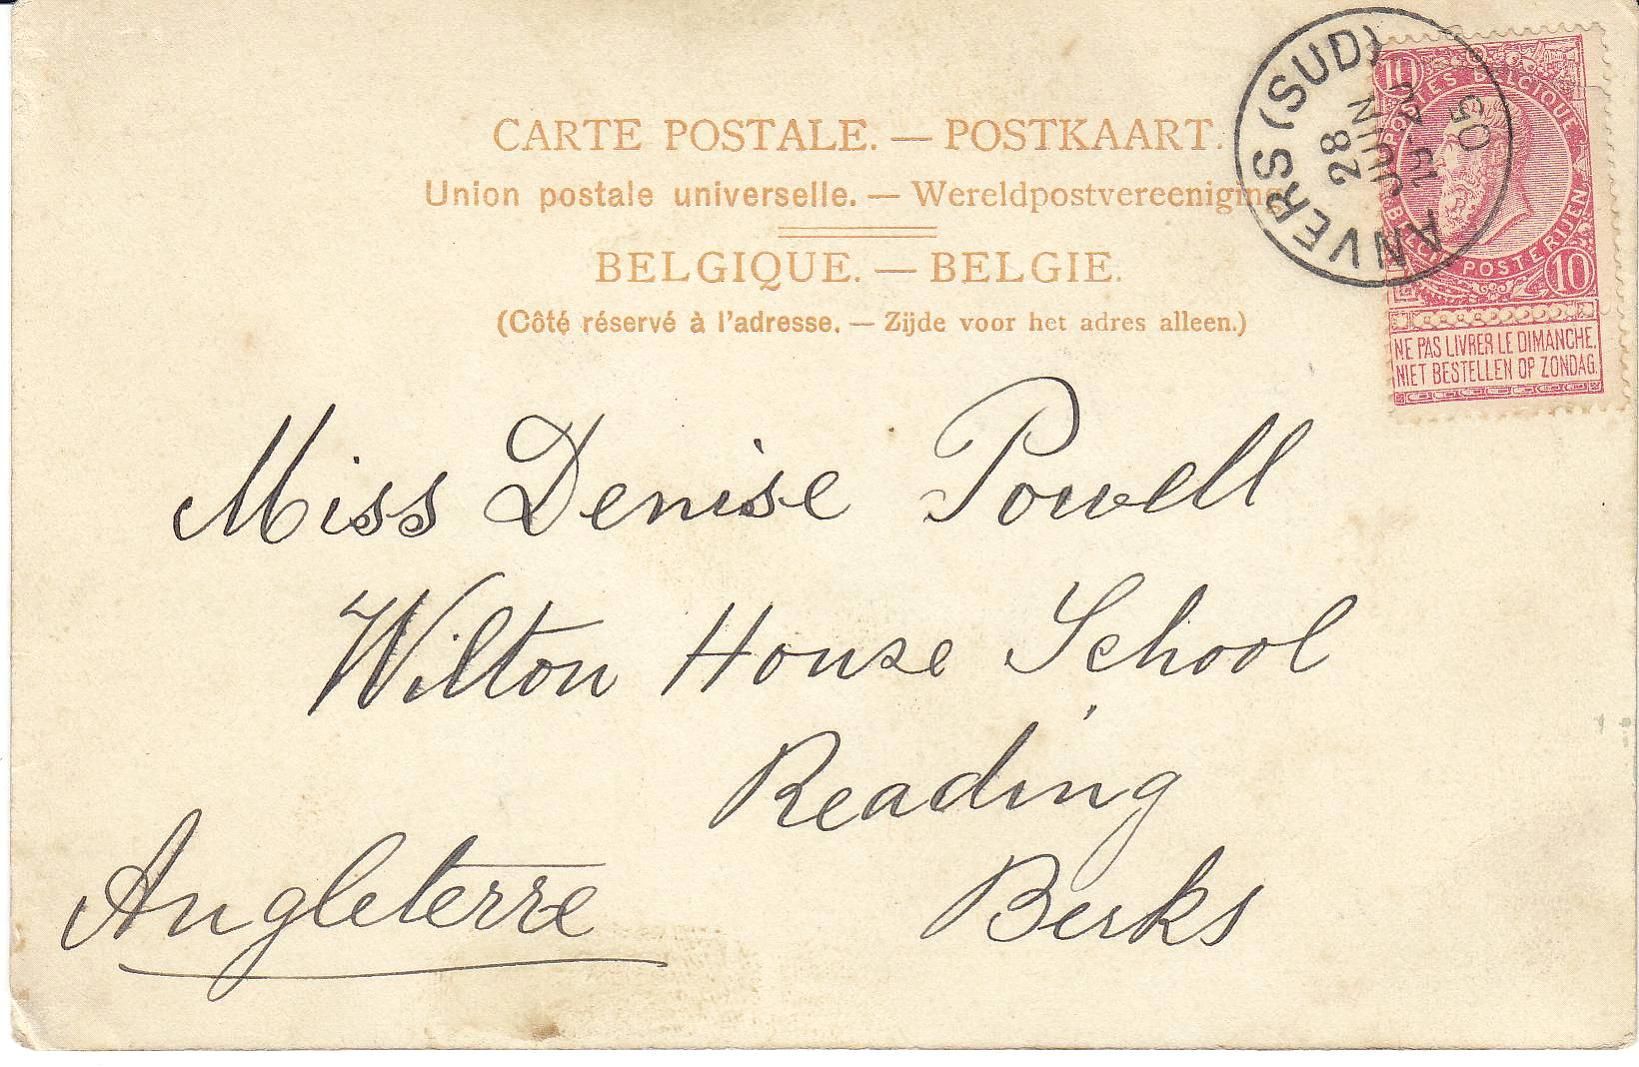 CARTE POSTALE. — POSTKAART.
Union postale universelle. — Wereldpostvereeniging
BELGIQUE. — BELGIE.
(Côté réservé à l'adresse. — Zijde voor het adres alleen.)
ANVERS (SUD)
28
JUIN
15
05
10
POSTES BELGIQUE
BELGIË POSTERIJEN
10
NE PAS LIVRER LE DIMANCHE.
NIET BESTELLEN OP ZONDAG.
Miss Denise Powell
Wilton House School
Reading
Berks
Angleterre